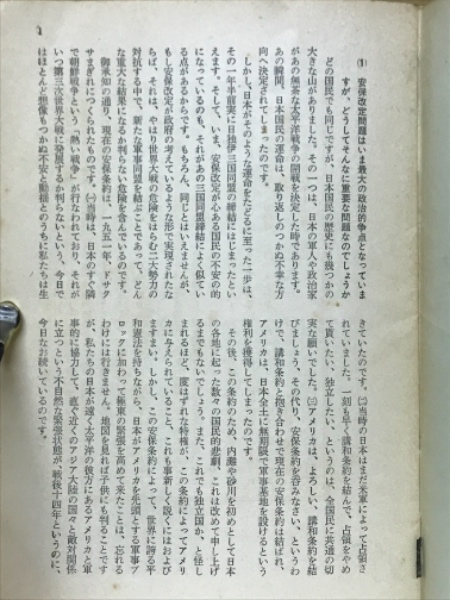 (1) 安保改定問題はいま最大の政治的争点となっていま
すが、どうしてそんなに重要な問題なのでしょうか
どの国民でも同じですが、日本国民の歴史にも幾つかの
大きな山がありました。その一つは、日本の軍人や政治家
があの無茶な太平洋戦争の開戦を決定した時であります。
あの瞬間、日本国民の運命は、取り返しのつかぬ不幸な方
向へ決定されてしまったのです。
しかし、日本がそのような運命をたどるに至った一歩は、
その一年半前実に日独伊三国同盟の締結にはじまったとい
えます。そして、いま、安保改定が心ある国民の不安の的
になっているのも、それがあの三国同盟締結によく似てい
る点があるからです。もちろん、同じとはいえませんが、
もし安保改定が政府の考えているような形で実現されたな
らば、それは、やはり世界大戦の危険をはらむ二大勢力の
対抗する中で、新たな軍事同盟を結ぶことであって、どん
な重大な結果になるか判らない危険を含んでいるのです。
御承知の通り、現在の安保条約は、一九五一年、ドサク
サまぎれにつくられたものです。㈠当時は、日本のすぐ隣
で朝鮮戦争という「熱い戦争」が行なわれており、それが
いつ第三次世界大戦に発展するか判らないという、今日で
はほとんど想像もつかぬ不安と動揺とのうちに私たちは生
きていたのです。㈡当時の日本はまだ米軍によって占領さ
れていました。一刻も早く講和条約を結んで、占領をやめ
て貰いたい、独立したい、というのは、全国民に共通の切
実な願いでした。㈢アメリカは、よろしい、講和条約を結
びましょう、その代り、安保条約を呑みなさい、というわ
けで、講和条約と抱き合わせで現在の安保条約は結ばれ、
アメリカは、日本全土に無期限で軍事基地を設けるという
権利を獲得してしまったのです。
その後、この条約のため、内灘や砂川を初めとして日本
の各地に起った数々の国民的悲劇、これは改めて申し上げ
るまでもないでしょう。また、これでも独立国か、と怪し
まれるほど、度はずれな特権が、この条約によってアメリ
カに与えられていること、これも事新しく説くにはおよび
ますまい。しかし、この安保条約によって、世界に誇る平
和憲法を持ちながら、日本がアメリカを先頭とする軍事ブ
ロックに加わって極東の緊張を高めて来たことは、忘れる
わけには行きません。地図を見れば子供にも判ることです
が、私たちの日本が遠く太平洋の彼方にあるアメリカと軍
事的に協力して、直ぐ近くのアジア大陸の国々と敵対関係
に立つという不自然な緊張状態が、戦後十四年というのに、
今日なお続いているのです。